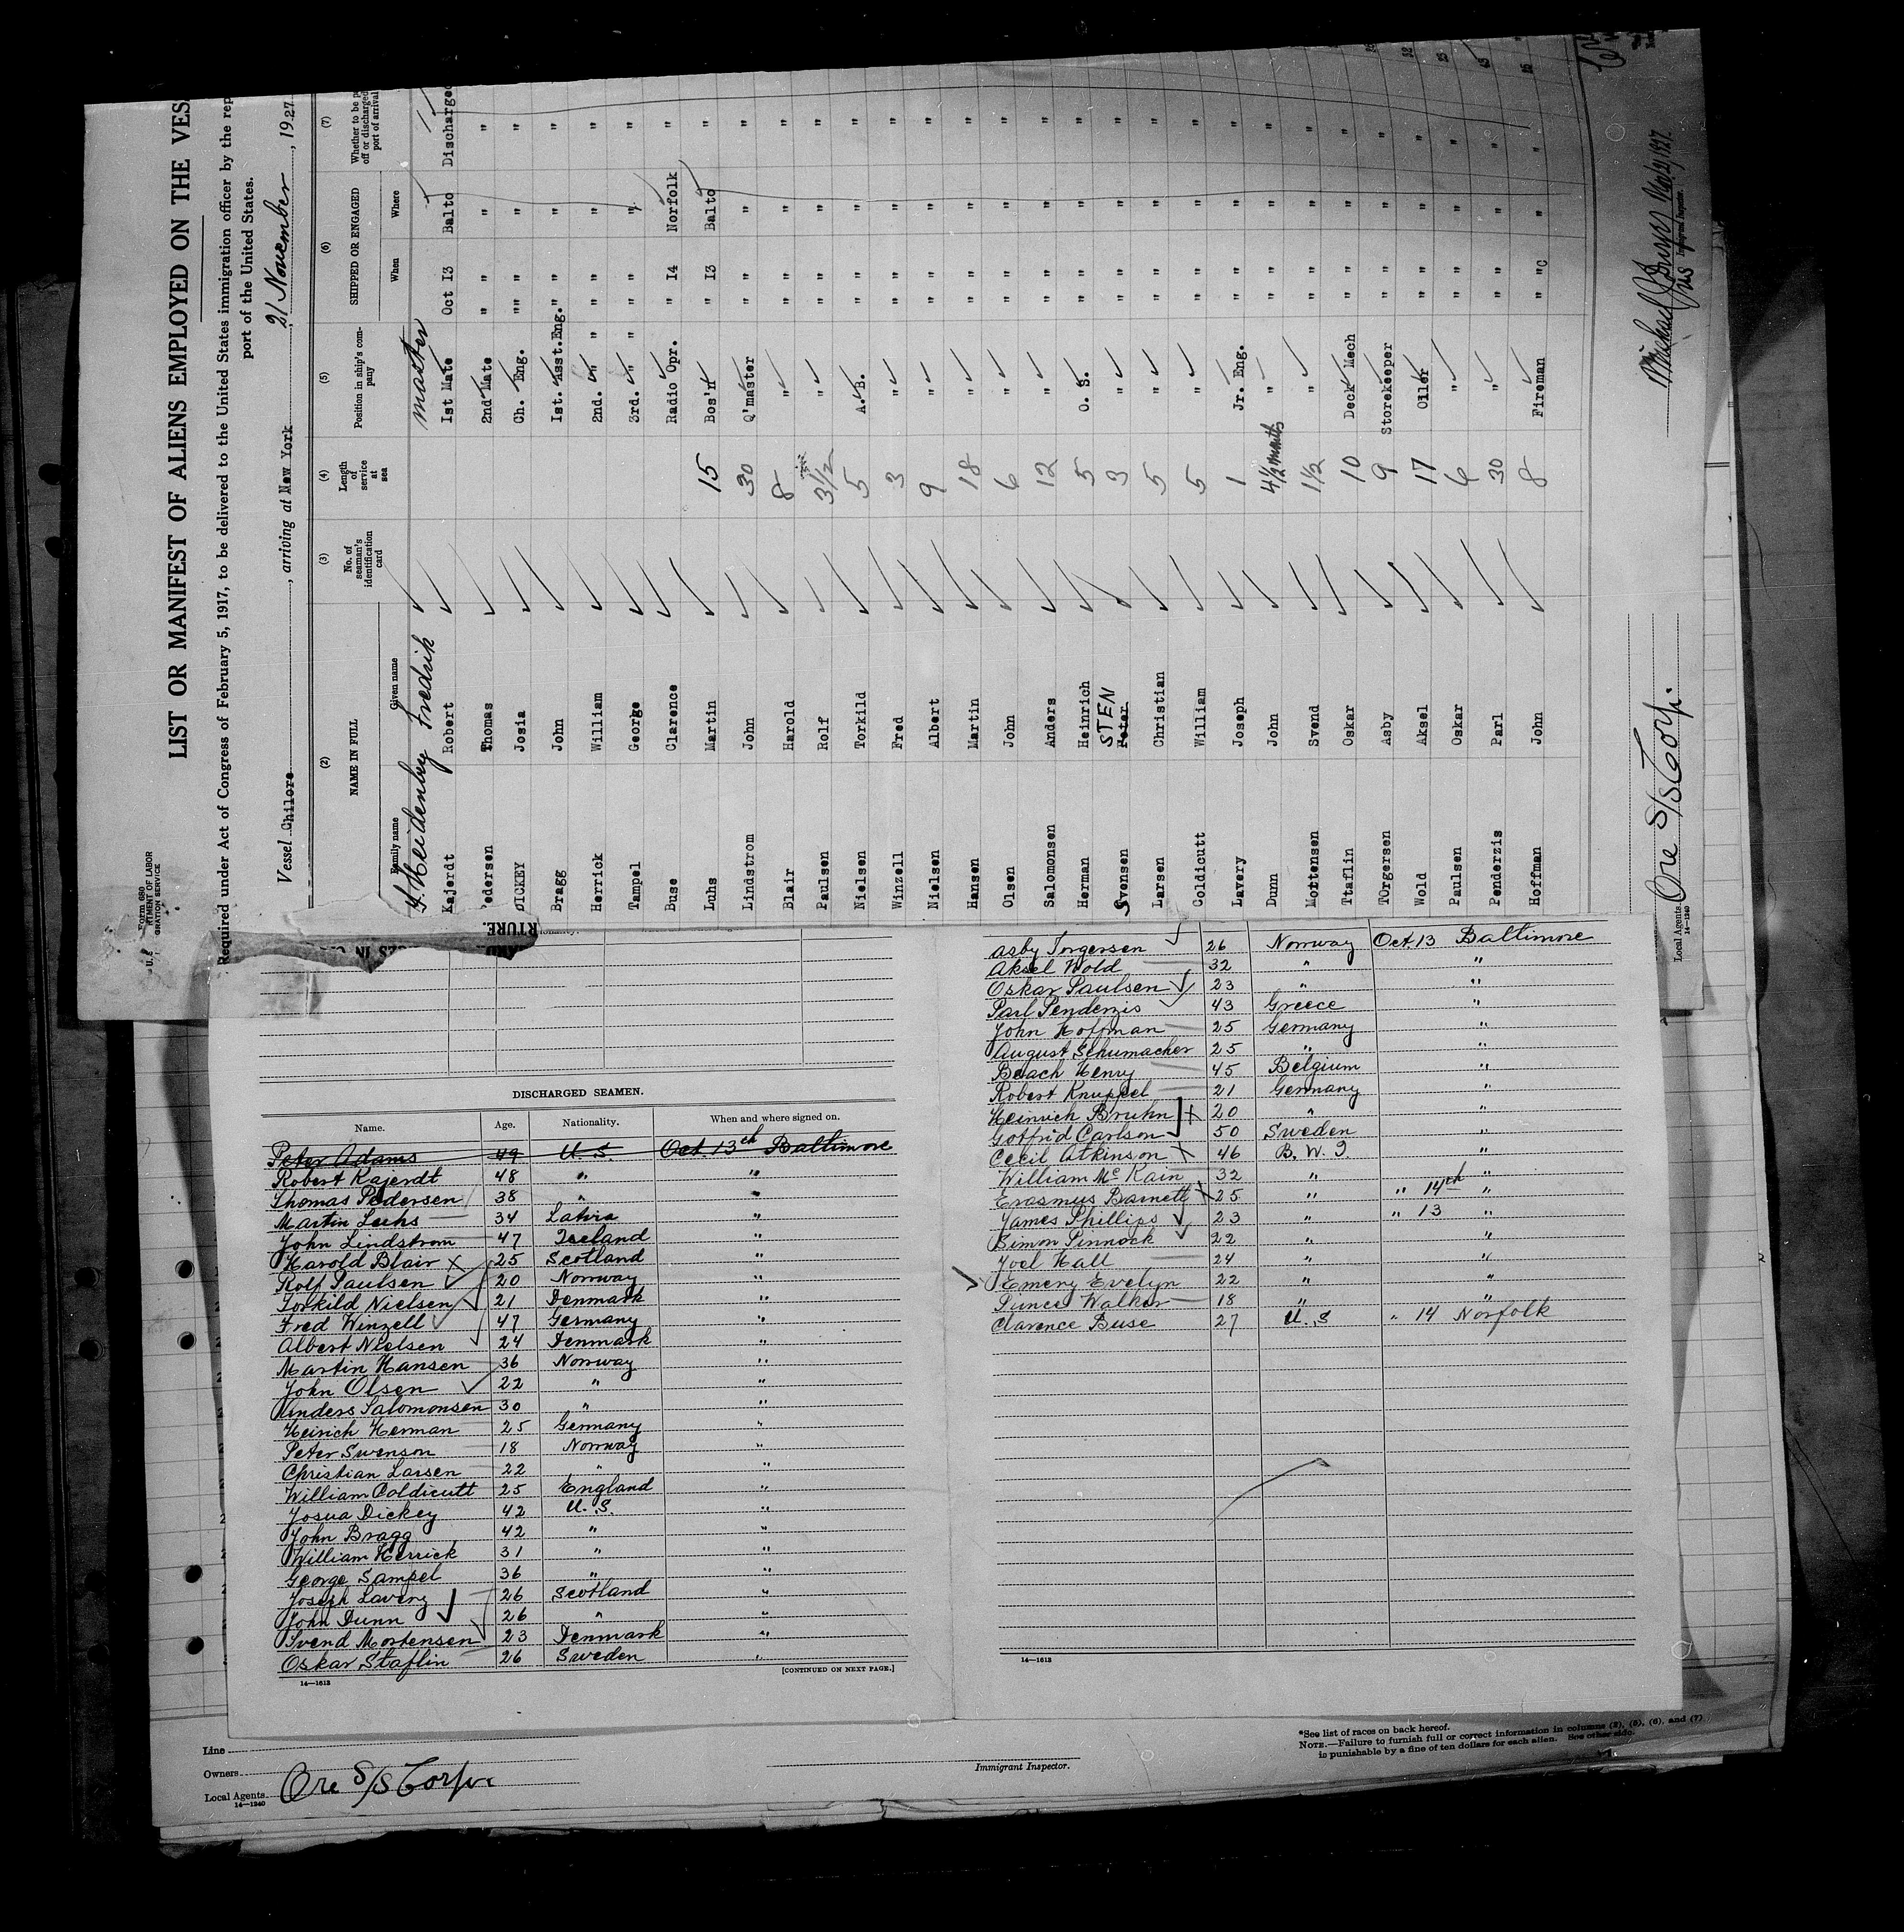 LIST OR MANIFEST OF ALIENS EMPLOYED ON THE VES
Required under Act of Congress of February 5, 1917, to be delivered to the United States immigration officer by the rep
port of the United States.
Vessel Chilore, arriving at New York 21 November, 1927
Form 680
RTMENT OF LABOR
GRATION SERVICE
(2) (3) (4) (5) (6) (7)
NAME IN FULL
Family name Given name
No. of seaman's identification card
Length of service at sea
Position in ship's company
SHIPPED OR ENGAGED
When Where
Whether to be p
off or discharged
port of arrival
Fredrik master
Kajerdt Robert 1st Mate Oct 13 Balto Discharged
Pedersen Thomas 2nd Mate " " " "
DICKEY Josia Ch. Eng. " " " "
Bragg John 1st. Asst.Eng. " " " "
Herrick William 2nd. " " " " " "
Tampel George 3rd. " " " " "
Buse Clarence Radio Opr. " 14 Norfolk "
Luhs Martin 15 Bos'n " 13 Balto "
Lindstrom John 30 Q'master " " " "
Blair Harold 8 " " " " "
Paulsen Rolf 3½ " " " " "
Nielsen Torkild 5 A.B. " " " "
Winzell Fred 3 " " " " "
Nielsen Albert 9 " " " " "
Hansen Martin 18 " " " " "
Olsen John 6 " " " " "
Salomonsen Anders 12 " " " " "
Herman Heinrich 5 O. S. " " " "
Svensen STEN Peter 3 " " " " "
Larsen Christian 5 " " " " "
Coldicutt William 5 " " " " "
Lavery Joseph 1 Jr. Eng. " " " "
Dunn John 4½ months " " " " "
Mottensen Svend 1½ " " " " "
Ttaflin Oskar 10 Deck Mech " " " "
TOrgersen Asby 9 Storekeeper " " " "
Wold Aksel 17 Oiler " " " "
Paulsen Oskar 6 " " " " "
Penderzis Parl 30 " " " " "
Hoffman John 8 Fireman " "c " "
Nov. 21, 1927.
Immigrant Inspector.
Local Agents Ore S/S Corp.
14—1240
RTURE.
DISCHARGED SEAMEN.
Name. Age. Nationality. When and where signed on.
Peter Adams 49 U. S. Oct. 13th Baltimore
Robert Kajerdt 48 " "
Thomas Pedersen 38 " "
Martin Luhs 34 Latvia "
John Lindstrom 47 Iceland "
Harold Blair 25 Scotland "
Rolf Paulsen 20 Norway "
Torkild Nielsen 21 Denmark "
Fred Winzell 47 Germany "
Albert Nielsen 24 Denmark "
Martin Hansen 36 Norway "
John Olsen 22 " "
Anders Salomonsen 30 " "
Heinich Herman 25 Germany "
Peter Swenson 18 Norway "
Christian Larsen 22 " "
William Coldicutt 25 England "
Josua Dickey 42 U. S. "
John Bragg 42 " "
William Herrick 31 " "
George Sampel 36 " "
Joseph Lavery 26 Scotland "
John Dunn 26 " "
Svend Mortensen 23 Denmark "
Oskar Staflin 26 Sweden "
14—1613 [CONTINUED ON NEXT PAGE.]
Asby Torgersen 26 Norway Oct. 13 Baltimore
Aksel Wold 32 " "
Oskar Paulsen 23 " "
Parl Penderzis 43 Greece "
John Hoffman 25 Germany "
August Schumacher 25 " "
Beach Henry 45 Belgium "
Robert Knuppel 21 Germany "
Heinrich Bruhn 20 " "
Gotfrid Carlson 50 Sweden "
Cecil Atkinson 46 B. W. I. "
William McKain 32 " "
Erasmus Barnett 25 " " 14th "
James Phillips 23 " " 13 "
Simon Pinnock 22 " "
Joel Hall 24 " "
Emery Evelyn 22 " "
Punce Walker 18 " "
Clarence Buse 27 U. S " 14 Norfolk
14—1613
Line
Owners
Local Agents Ore S/S Corp.
14—1240
Immigrant Inspector.
*See list of races on back hereof.
NOTE.—Failure to furnish full or correct information in columns (2), (5), (6), and (7)
is punishable by a fine of ten dollars for each alien. See other side.